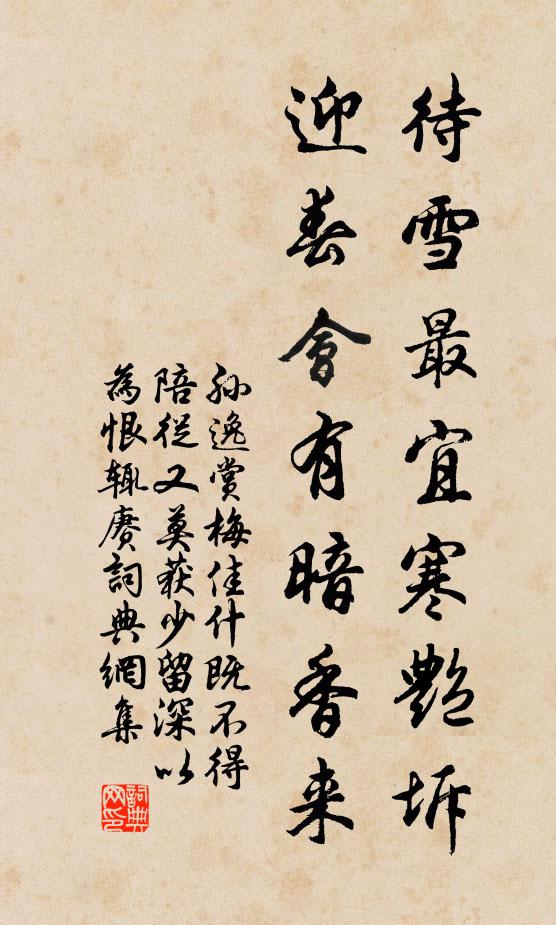 待雪最宜寒艷坼
迎春會有暗香来
孙逸賞梅佳什既不得
陪従又莫获少留深以
為恨辄赓詞典網集
詞典网印